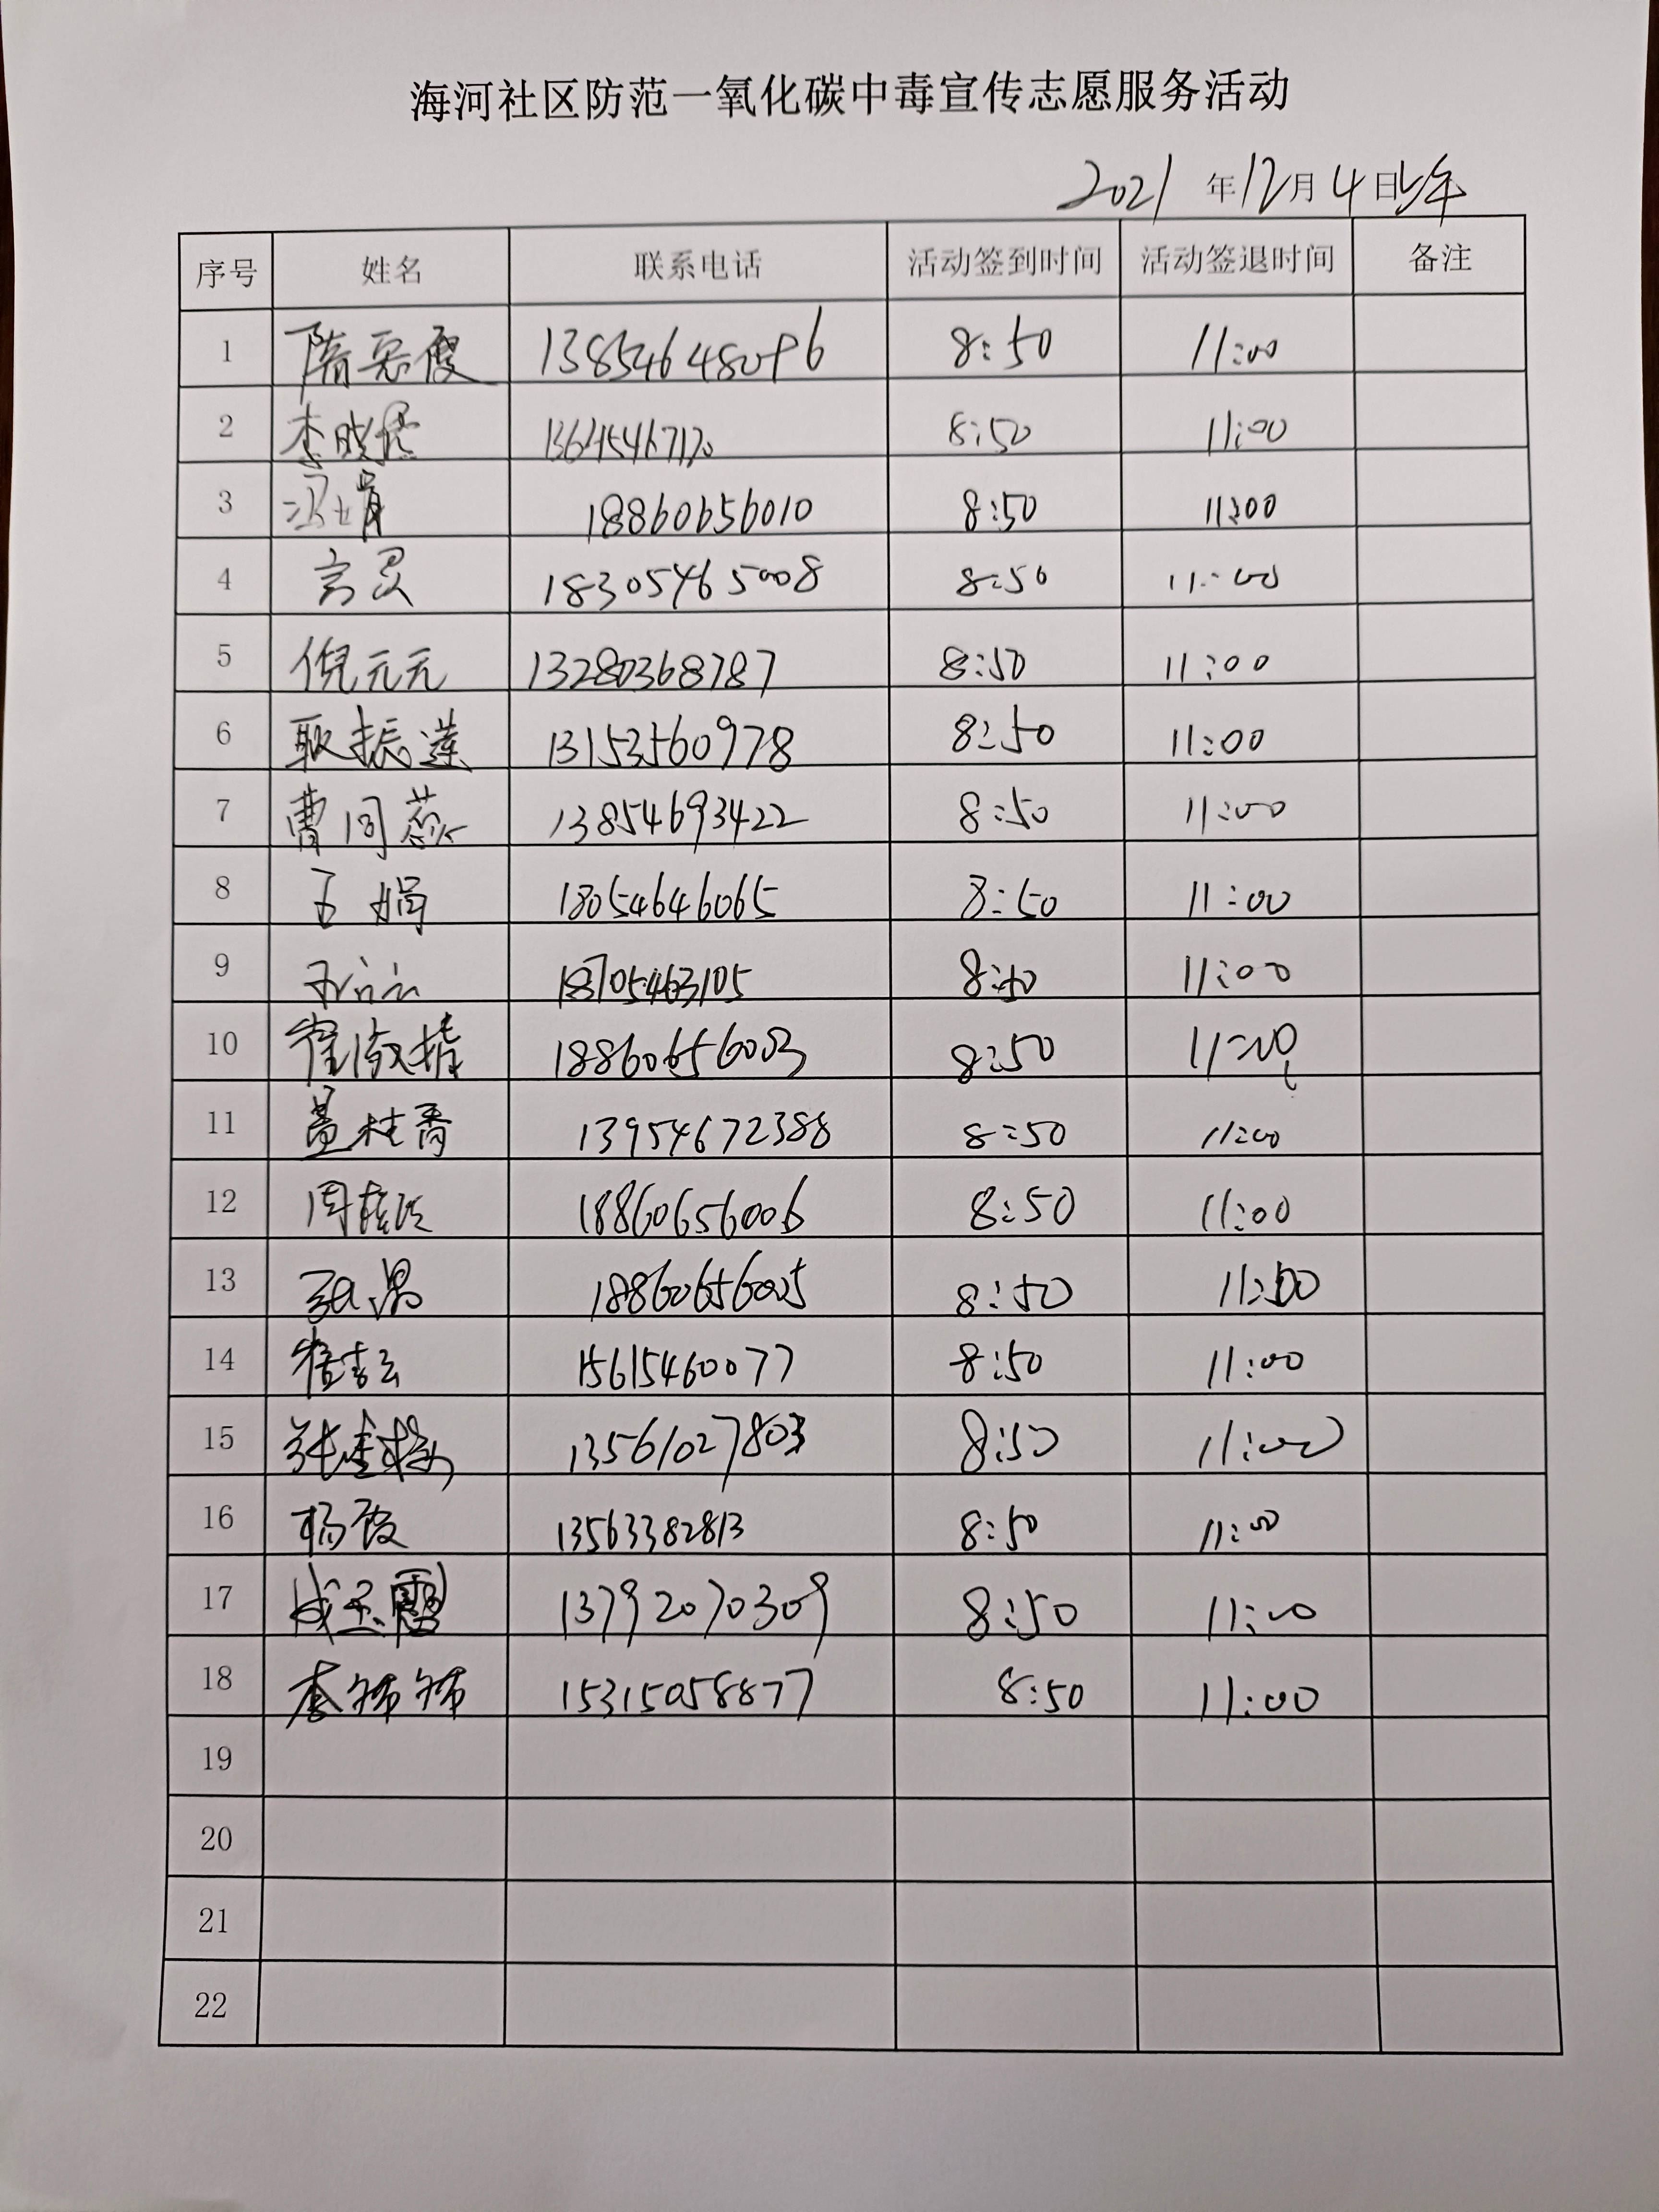 海河社区防范一氧化碳中毒宣传志愿服务活动
2021 年 12 月 4 日上午
序号 姓名 联系电话 活动签到时间 活动签退时间 备注
1 隋 霞 13854648096 8:50 11:00
2 李晓 8:50 11:00
3 冯娟 18860656010 8:50 11:00
4 18305465008 8:50 11:00
5 倪元元 13280368787 8:50 11:00
6 耿振莲 13153560978 8:50 11:00
7 曹同蕊 13854693422 8:50 11:00
8 王娟 18054646065 8:50 11:00
9 18705463105 8:50 11:00
10 崔 18860656003 8:50 11:00
11 盖桂香 13954672388 8:50 11:00
12 周 18860656006 8:50 11:00
13 18860656005 8:50 11:00
14 崔 15615460077 8:50 11:00
15 张 13561027803 8:50 11:00
16 杨霞 13563382813 8:50 11:00
17 成玉霞 13792070309 8:50 11:00
18 李 15315058877 8:50 11:00
19
20
21
22